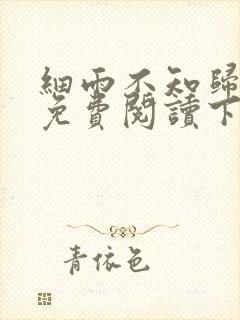 細雨不知歸
免費閱讀下
青依色